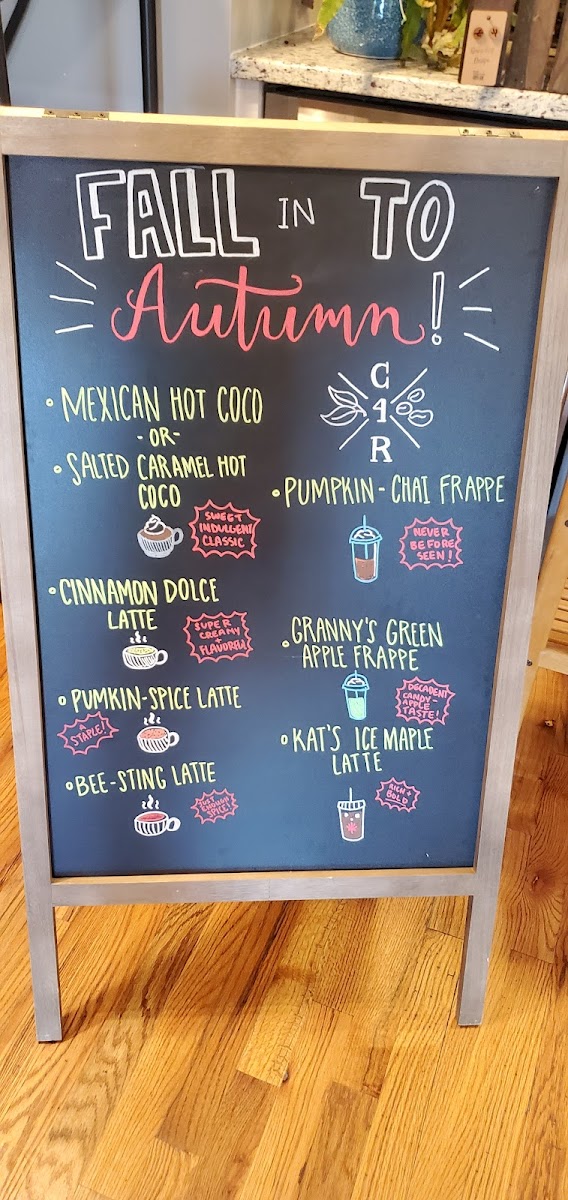 FALL IN TO
Autumn!
• MEXICAN HOT COCO
-OR-
• SALTED CARAMEL HOT
COCO
SWEET
INDULGENT
CLASSIC
• CINNAMON DOLCE
LATTE
SUPER
CREAMY
+
FLAVORFUL
• PUMKIN-SPICE LATTE
A
STAPLE!
• BEE-STING LATTE
SPICE!
C
4
R
• PUMPKIN-CHAI FRAPPE
NEVER
BEFORE
SEEN!
• GRANNY'S GREEN
APPLE FRAPPE
DECADENT
CANDY-
APPLE
TASTE!
• KAT'S ICE MAPLE
LATTE
RICH +
BOLD